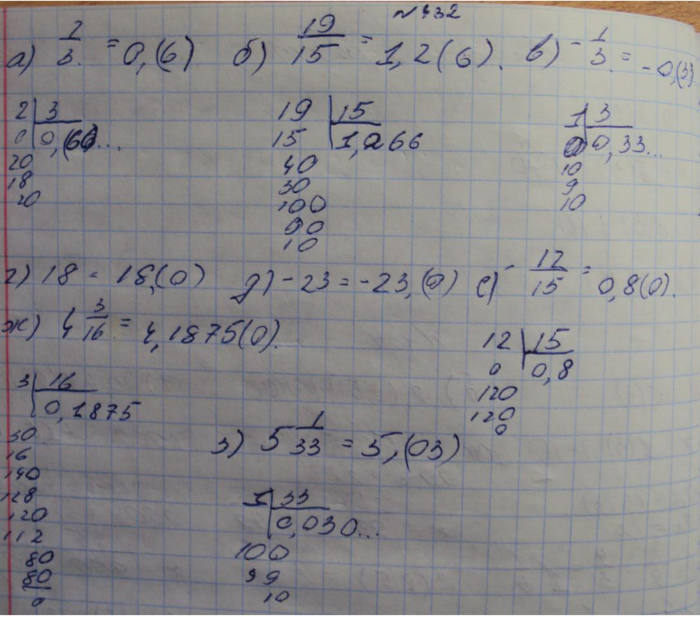 №432
а) 2/3 = 0,(6) б) 19/15 = 1,2(6). в) -1/3 = -0,(3)
2 | 3
0 | 0,(66)...
20
18
20
19 | 15
15 | 1,266
40
30
100
90
10
1 | 3
0 | 0,33...
10
9
10
г) 18 = 18,(0) д) -23 = -23,(0) е) -12/15 = 0,8(0).
ж) 4 3/16 = 4,1875(0).
12 | 15
0 | 0,8
120
120
0
3 | 16
0,1875
30
16
140
128
120
112
80
80
0
з) 5 1/33 = 5,(03)
1 | 33
0,030...
100
99
10